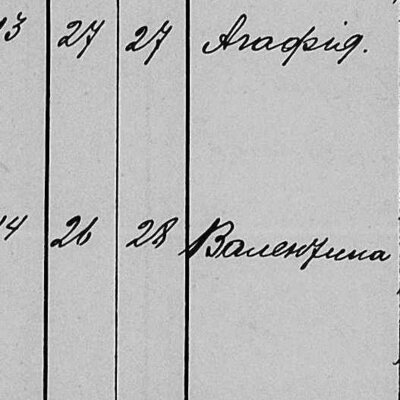 13 27 27 Агафія.
14 26 28 Валентина